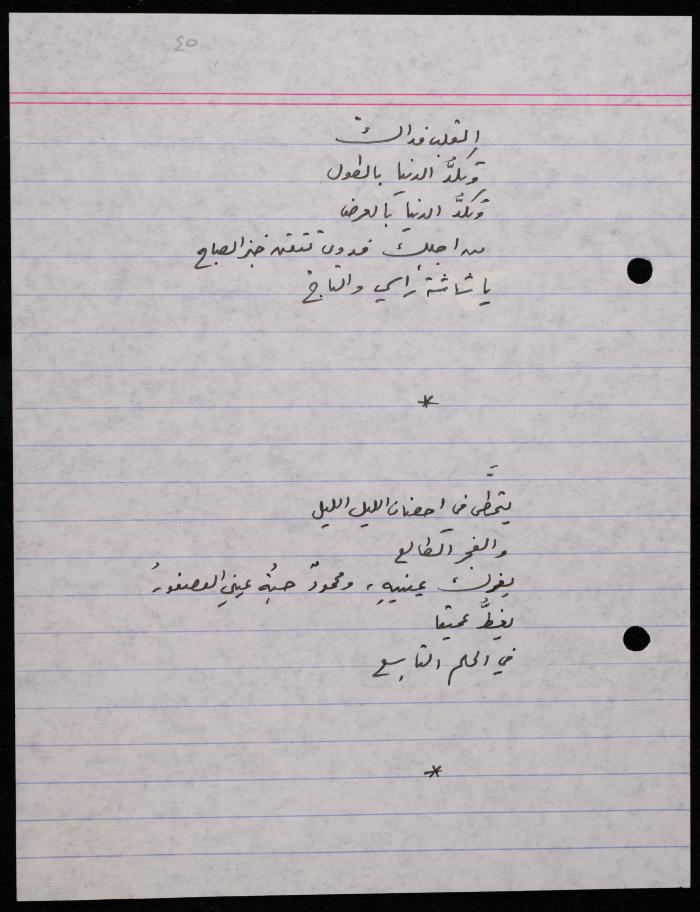 ٤٥
القلب فداك
وَتكدُّ الدنيا بالطول
وَتكدُّ الدنيا بالعرض
من اجلك فدوى تتقن خبز الصباح
يا شاشة راسي والتاجْ
*
يتمطَّى في احضان الليل الليل
والفجر الطالع
يفرك عينيهِ، ومحمودٌ حبّة عيني العصفورُ
يغطُّ عميقا
في الحلم التاسع
*